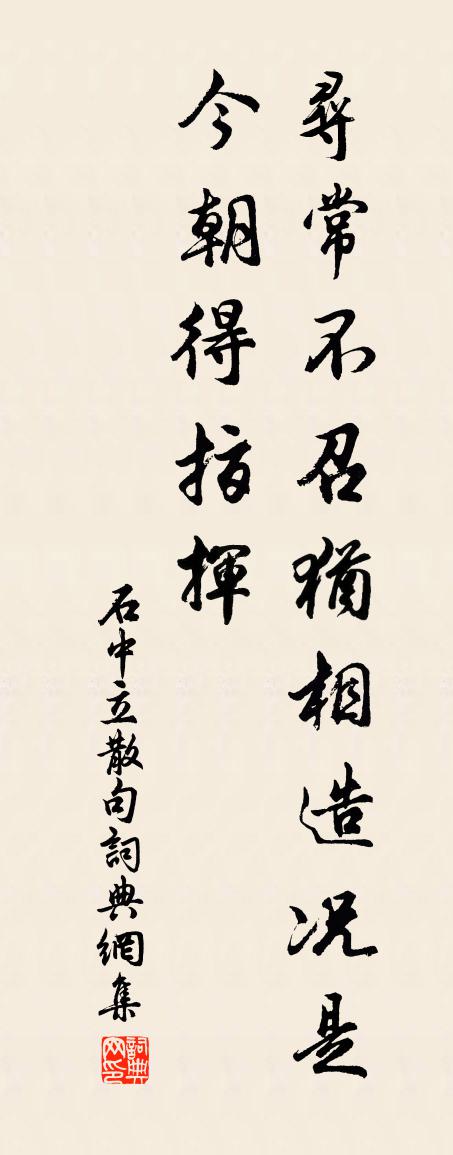 尋常不召猶相造况是
今朝得指揮
石中立散句詞典網集
詞典网印